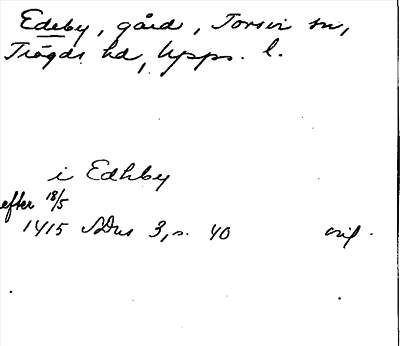 Edeby, gård, Torsvi sn,
Trögds hd, Upps. l.
i Edhby
efter 18/5
1415 SDns 3, s. 40 orig.